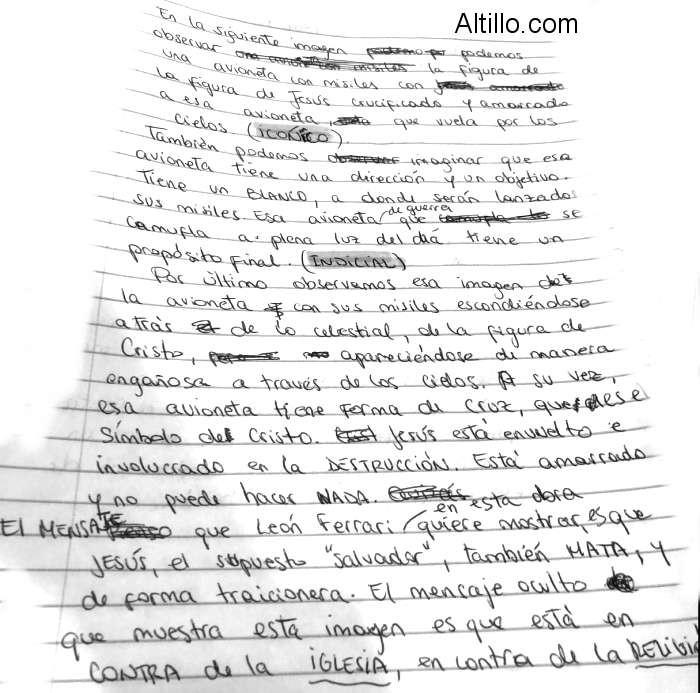 Altillo.com
En la siguiente imagen podemos
observar la figura de
una avioneta con misiles con
la figura de Jesús crucificado y amarrado
a esa avioneta, que vuela por los
cielos (ICONICO).
También podemos imaginar que esa
avioneta tiene una dirección y un objetivo.
Tiene un BLANCO, a donde serán lanzados
sus misiles. Esa avioneta de guerra que se
camufla a plena luz del día tiene un
propósito final. (INDICIAL)
Por último observamos esa imagen de
la avioneta con sus misiles escondiéndose
atrás de lo celestial, de la figura de
Cristo, apareciéndose de manera
engañosa a través de los cielos. A su vez,
esa avioneta tiene forma de cruz, que es el
símbolo de Cristo. Jesús está envuelto e
involucrado en la DESTRUCCIÓN. Está amarrado
y no puede hacer NADA.
El MENSAJE que León Ferrari en esta obra quiere mostrar, es que
JESÚS, el supuesto "salvador", también MATA, y
de forma traicionera. El mencaje oculto
que muestra esta imagen es que está en
CONTRA de la IGLESIA, en contra de la